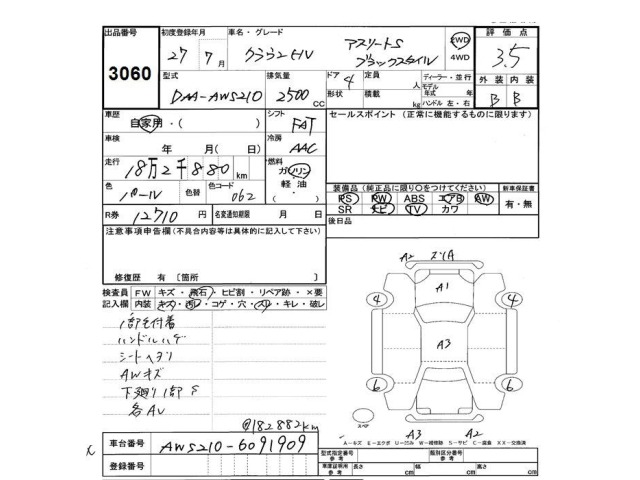 出品番号 3060
初度登録年月 27年 7月
車名・グレード クラウンHV アスリートS ブラックスタイル
2WD 4WD
評価点 3.5
型式 DAA-AWS210
排気量 2500 CC
ドア 4
形状
定員 人
積載 kg
ディーラー・並行
モデル年式 年式
ハンドル 左・右
外装 内装
B B
車歴 自家用・( )
シフト FAT
セールスポイント (正常に機能するものに限ります)
車検 年 月(日)
冷房 AAC
走行 18万2千880 km
燃料 ガソリン・軽油・( )
色 パール 色替 色コード 062
装備品(純正品に限り○をつけてください)
PS PW ABS エアB AW
SR ナビ TV カワ
新車保証書 有・無
R券 12710 円
名変通知期限 月 日
後日品
注意事項申告欄(不具合内容等は具体的に記入して下さい)
修復歴 有〔箇所 〕
検査員記入欄
FW キズ・飛石・ヒビ割・リペア跡・×要
内装 キズ・汚レ・コゲ・穴・スレ・キレ・破レ
ハンドルハゲ
シートヘタリ
AWキズ
下廻り1部S
@182882km
A2 A
A1
4 4
A3
6 6
スペア
A3 A2
A-キズ E-エクボ U-凹み W-補修跡 S-サビ C-腐食 XX-交換済
車台番号 AWS210-6091909
登録番号
型式指定番号 参考
類別区分番号 参考
車庫証明用 参考 長さ cm 幅 cm 高さ cm